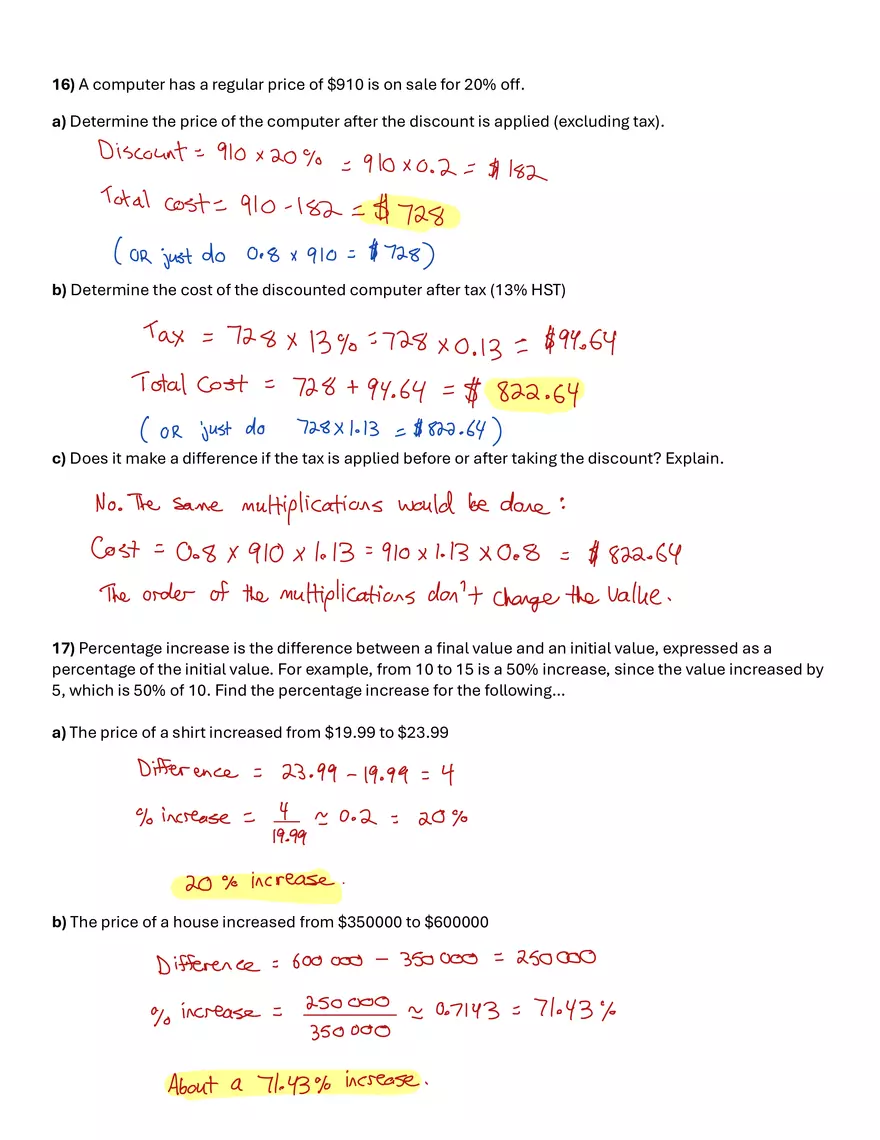 16) A computer has a regular price of $910 is on sale for 20% off.
a) Determine the price of the computer after the discount is applied (excluding tax).
Discount = 910 x 20% = 910 x 0.2 = $182
Total cost = 910 - 182 = $728
(OR just do 0.8 x 910 = $728)
b) Determine the cost of the discounted computer after tax (13% HST)
Tax = 728 x 13% = 728 x 0.13 = $94.64
Total Cost = 728 + 94.64 = $822.64
(OR just do 728 x 1.13 = $822.64)
c) Does it make a difference if the tax is applied before or after taking the discount? Explain.
No. The same multiplications would be done:
Cost = 0.8 x 910 x 1.13 = 910 x 1.13 x 0.8 = $822.64
The order of the multiplications don't change the value.
17) Percentage increase is the difference between a final value and an initial value, expressed as a
percentage of the initial value. For example, from 10 to 15 is a 50% increase, since the value increased by
5, which is 50% of 10. Find the percentage increase for the following...
a) The price of a shirt increased from $19.99 to $23.99
Difference = 23.99 - 19.99 = 4
% increase = 4/19.99 ≃ 0.2 = 20%
20% increase.
b) The price of a house increased from $350000 to $600000
Difference = 600 000 - 350 000 = 250 000
% increase = 250 000/350 000 ≃ 0.7143 = 71.43%
About a 71.43% increase.